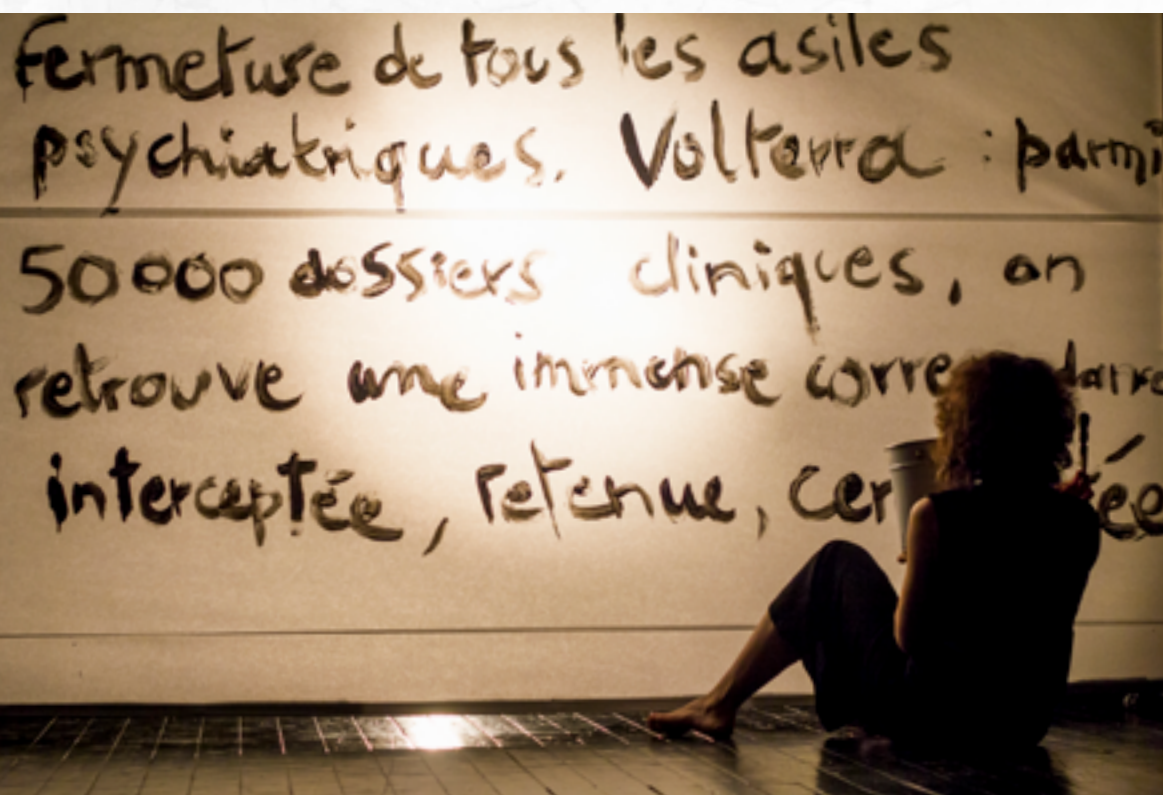 Fermeture de tous les asiles
psychiatriques. Volterra : parmi
50000 dossiers cliniques, on
retrouve une immense
interceptée, retenue,